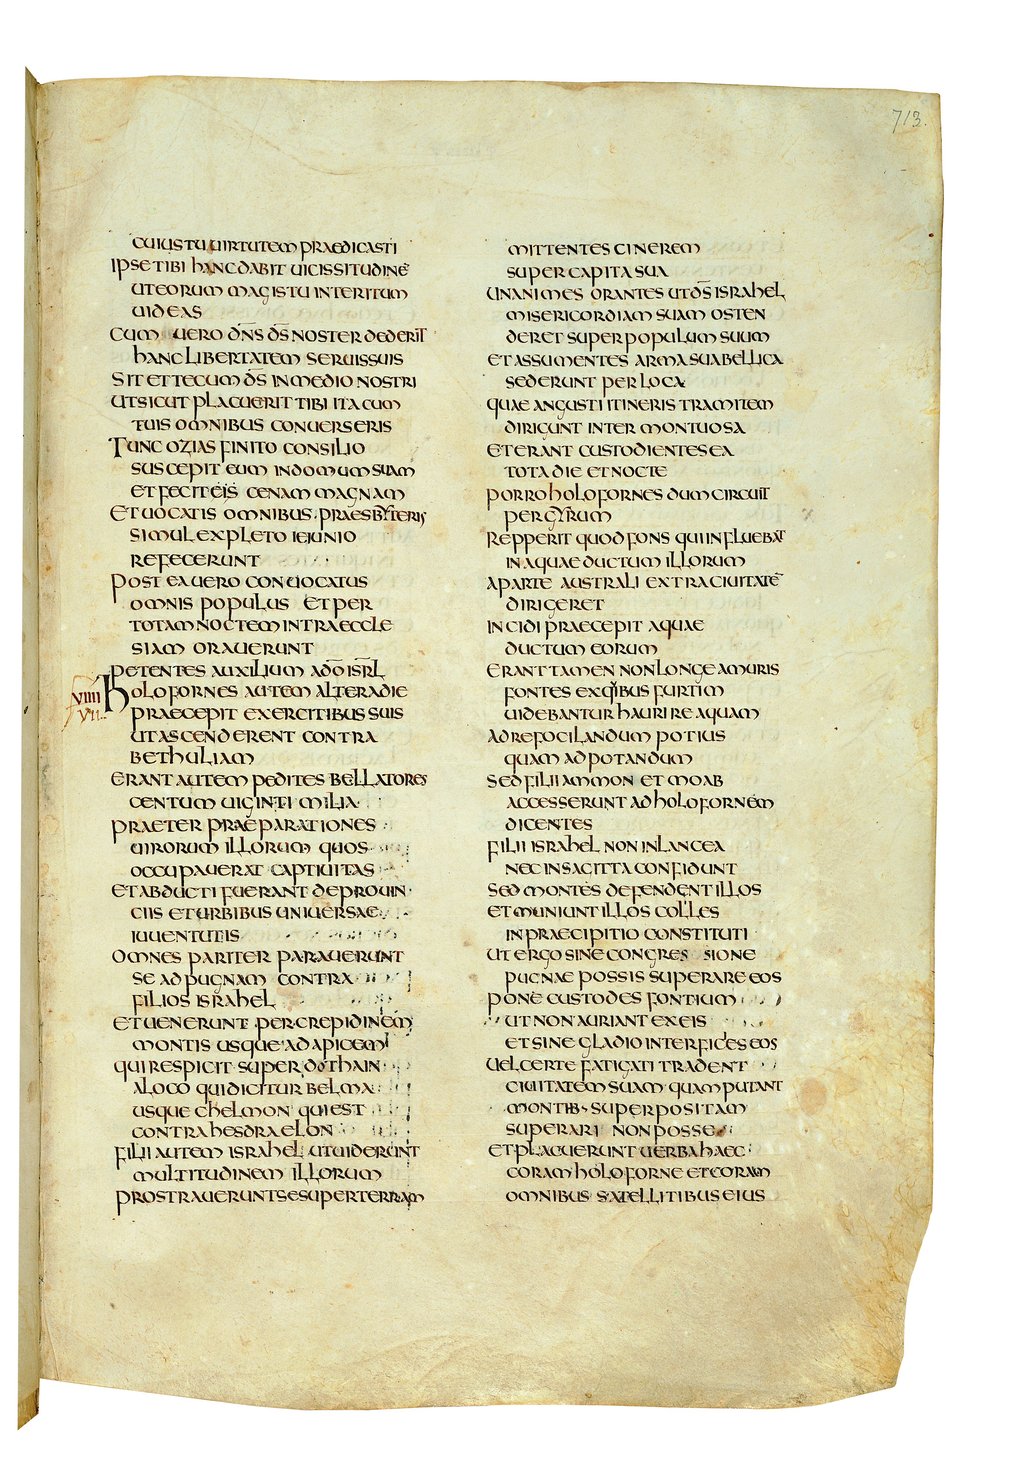 713.
cuius tu uirtutem praedicasti
ipse tibi hanc dabit uicissitudinē
ut eorum magis tu interitum
uideas
cum uero dn̄s d̄s noster dederit
hanc libertatem seruis suis
sit et tecum d̄s in medio nostri
ut sicut placuerit tibi ita cum
tuis omnibus conuerseris
Tunc ozias finito consilio
suscepit eum in domum suam
et fecit eis cenam magnam
et uocatis omnibus praesbyteris
simul expleto ieiunio
refecerunt
post ea uero conuocatus
omnis populus et per
totam noctem intra eccle
siam orauerunt
petentes auxilium a d̄o isrl̄
viiii holofornes autem altera die
vii praecepit exercitibus suis
ut ascenderent contra
bethuliam
erant autem pedites bellatores
centum uiginti milia
praeter praeparationes
uirorum illorum quos
occupauerat captiuitas
et abducti fuerant de prouin
ciis et urbibus uniuersae
iuuentutis
omnes pariter parauerunt
se ad pugnam contra
filios israhel
et uenerunt per crepidinem
montis usque ad apicem
qui respicit super dothain
a loco qui dicitur belma
usque chelmon qui est
contra hesdraelon
filii autem israhel ut uiderunt
multitudinem illorum
prostrauerunt se super terram
mittentes cinerem
super capita sua
unanimes orantes ut d̄s israhel
misericordiam suam osten
deret super populum suum
et assumentes arma sua bellica
sederunt per loca
quae angusti itineris tramitem
dirigunt inter montuosa
et erant custodientes ea
tota die et nocte
porro holofornes dum circuit
per gyrum
repperit quod fons qui influebat
in aquaeductum illorum
a parte australi extra ciuitatē
dirigeret
incidi praecepit aquae
ductum eorum
erant tamen non longe a muris
fontes ex quibus furtim
uidebantur haurire aquam
ad refocilandum potius
quam ad potandum
sed filii ammon et moab
accesserunt ad holofornem
dicentes
filii israhel non in lancea
nec in sagitta confidunt
sed montes defendent illos
et muniunt illos colles
in praecipitio constituti
ut ergo sine congres sione
pugnae possis superare eos
pone custodes fontium
ut non auriant ex eis
et sine gladio interficies eos
uel certe fatigati tradent
ciuitatem suam quam putant
in montibus superpositam
superari non posse
et placuerunt uerba haec
coram holoforne et coram
omnibus satellitibus eius